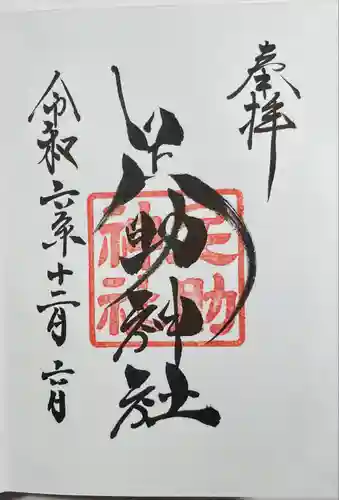 奉拝
足助神社
足助
神社
令和六年十二月六日